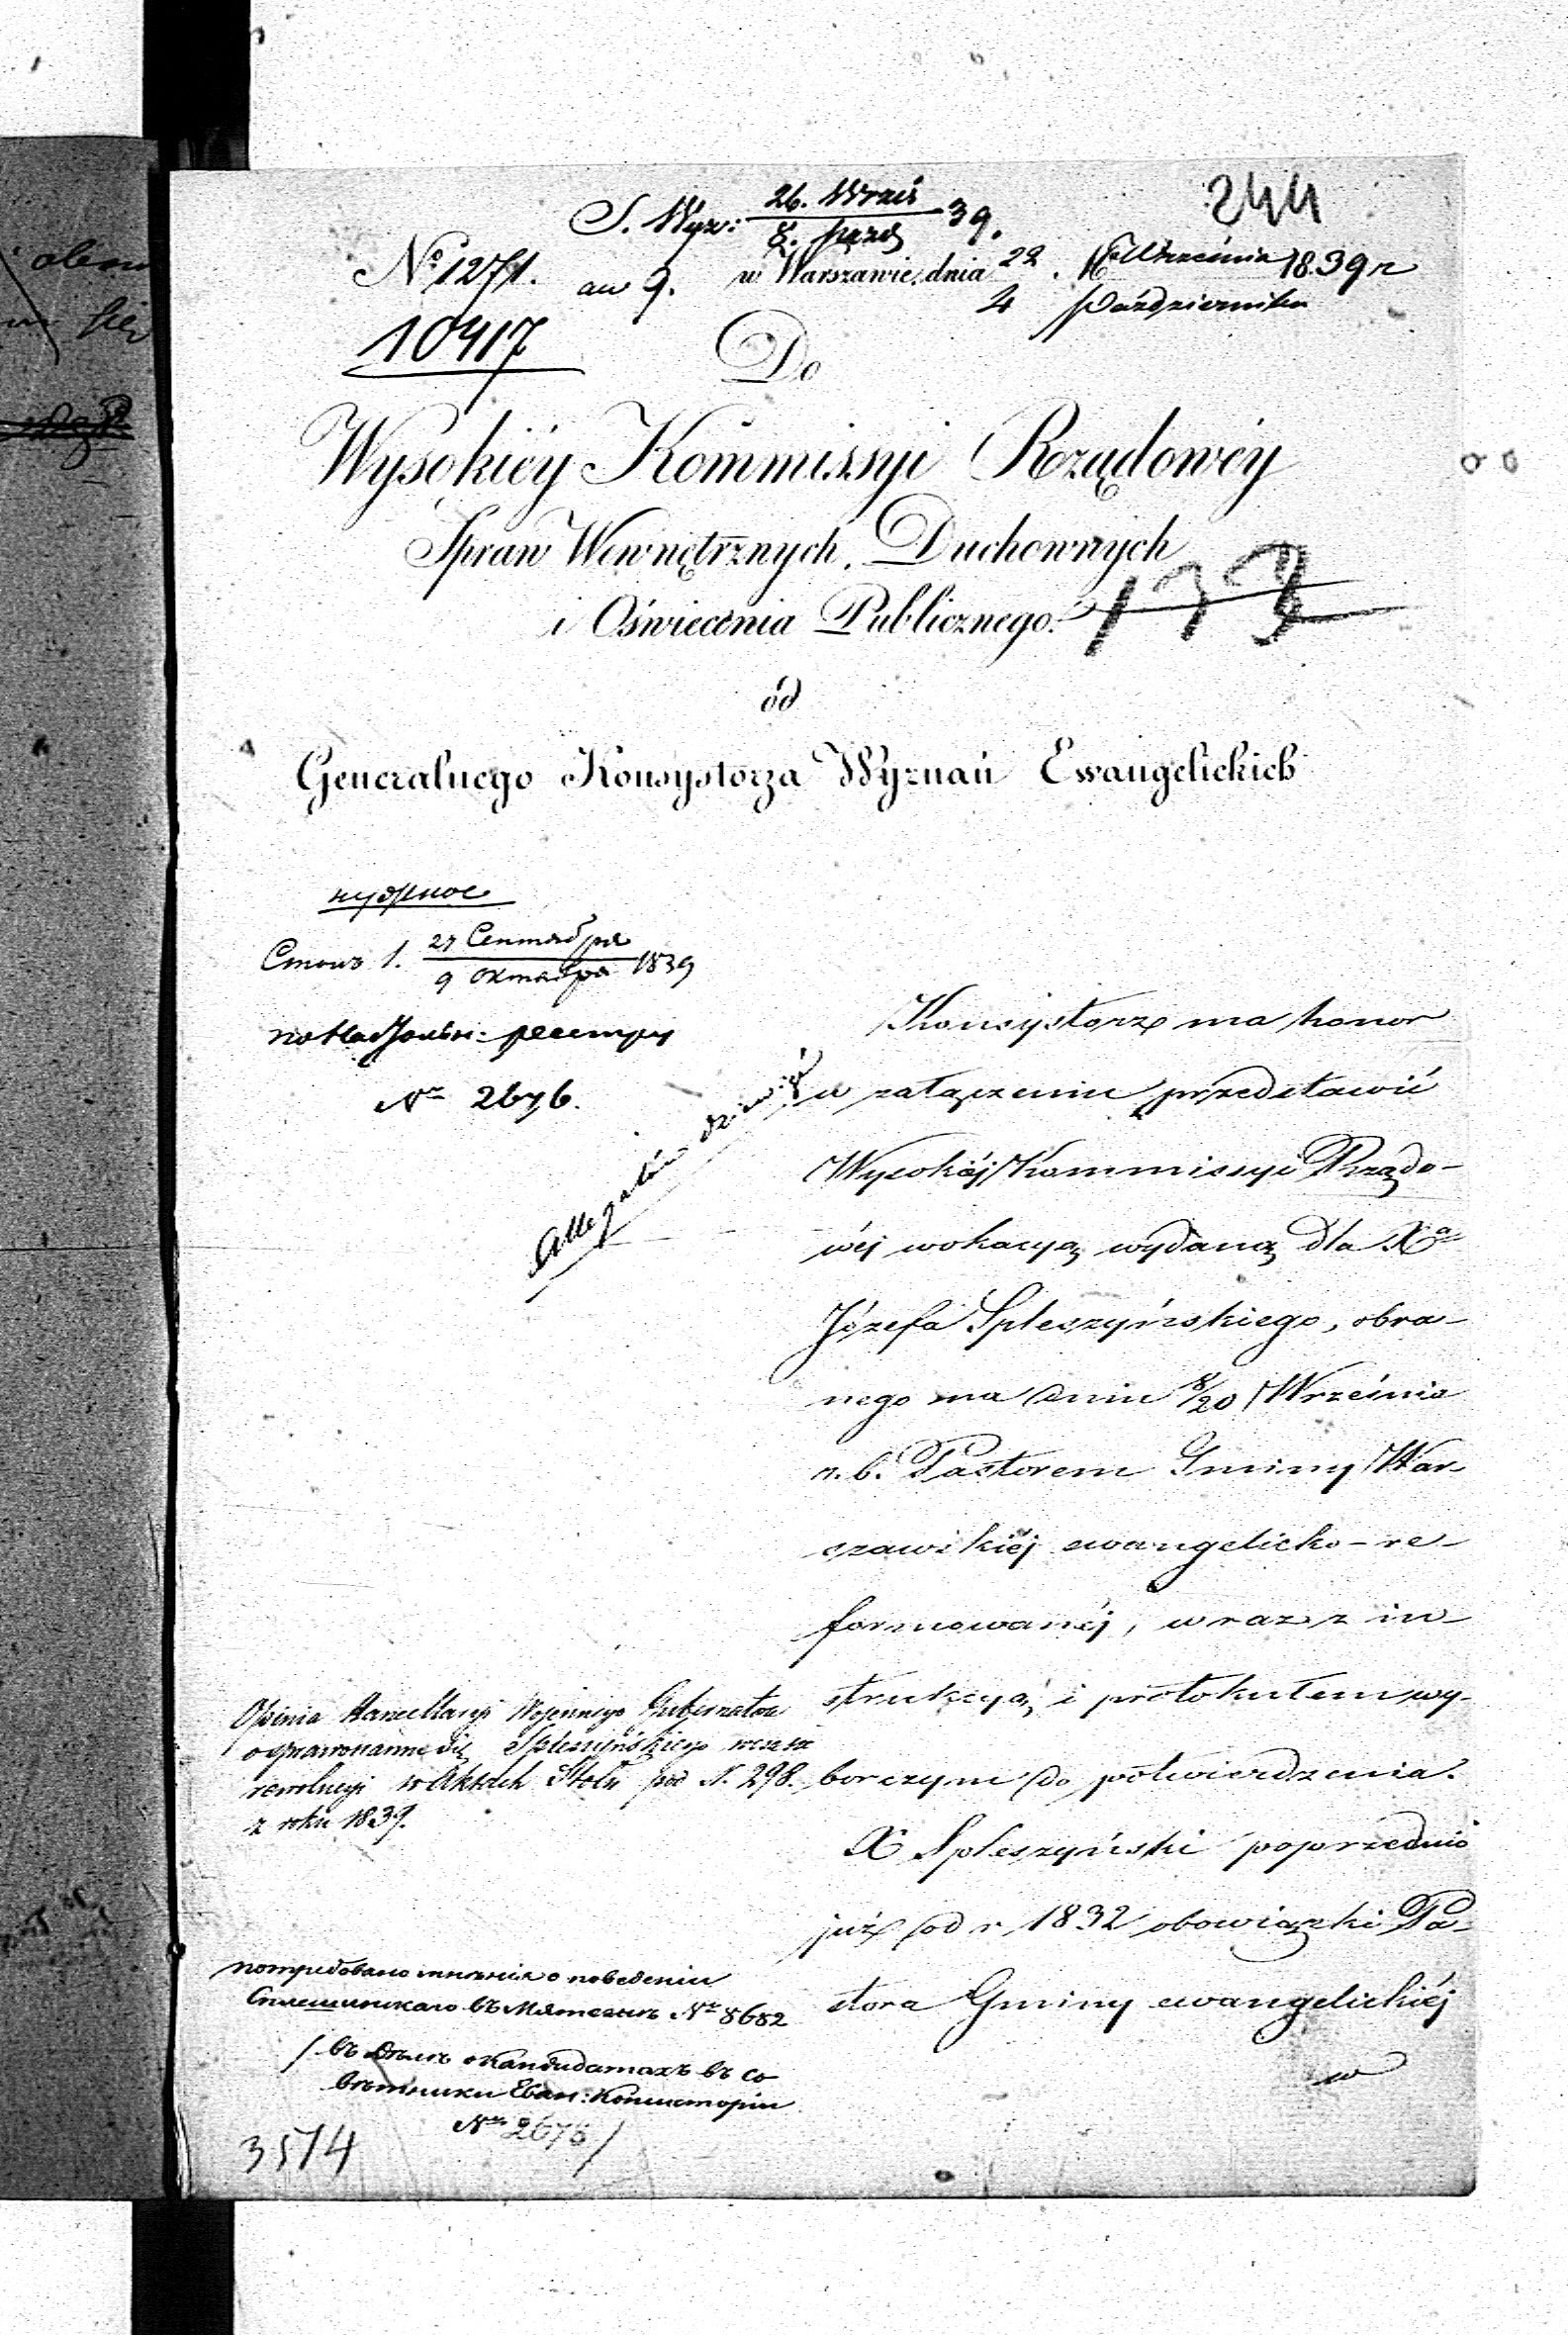 244
S. Wyz: 26. Wrześ 39.
8. Paźd
No 1271.
an 9.
w Warszawie, dnia 22 Września 1839 r
4 Października
10417
Do
Wysokiéy Kommissyi Rządowéy
Spraw Wewnętrznych, Duchownych
i Oświecenia Publicznego.
173
od
Generalnego Konsystorza Wyznań Ewangelickich
нужное
Столъ 1. 27 Сентября 1839
9 Октября
Nr 2676.
Allegatów dziewięć
Konsystorz ma honor
w załączeniu przedstawić
Wysokiéj Kommissyi Rządo-
wéj wokacyą wydaną dla Xa
Józefa Spleszyńskiego, obra-
nego na dniu 8/20 Września
r. b. Pastorem Gminy War-
szawskiéj ewangelicko-re-
formowanéj, wraz z in-
strukcyą i protokułem wy-
borczym do potwierdzenia.
X Spleszyński poprzednio
już od r. 1832 obowiązki Pa-
stora Gminy ewangelickiéj
w
Opinia Kancellaryi Wojennego Gubernatora
o sprawowaniu się Spleszyńskiego wczasie
rewolucyi w Aktach Stołu pod N. 298.
z roku 1839.
потребовано мнѣнія о поведеніи
Сплешинскаго въ Мятежѣ Nr 8682
/ въ Дѣлѣ о Кандидатахъ въ Со
вѣтники Еван: Консисторіи
Nr 2676 /
3514